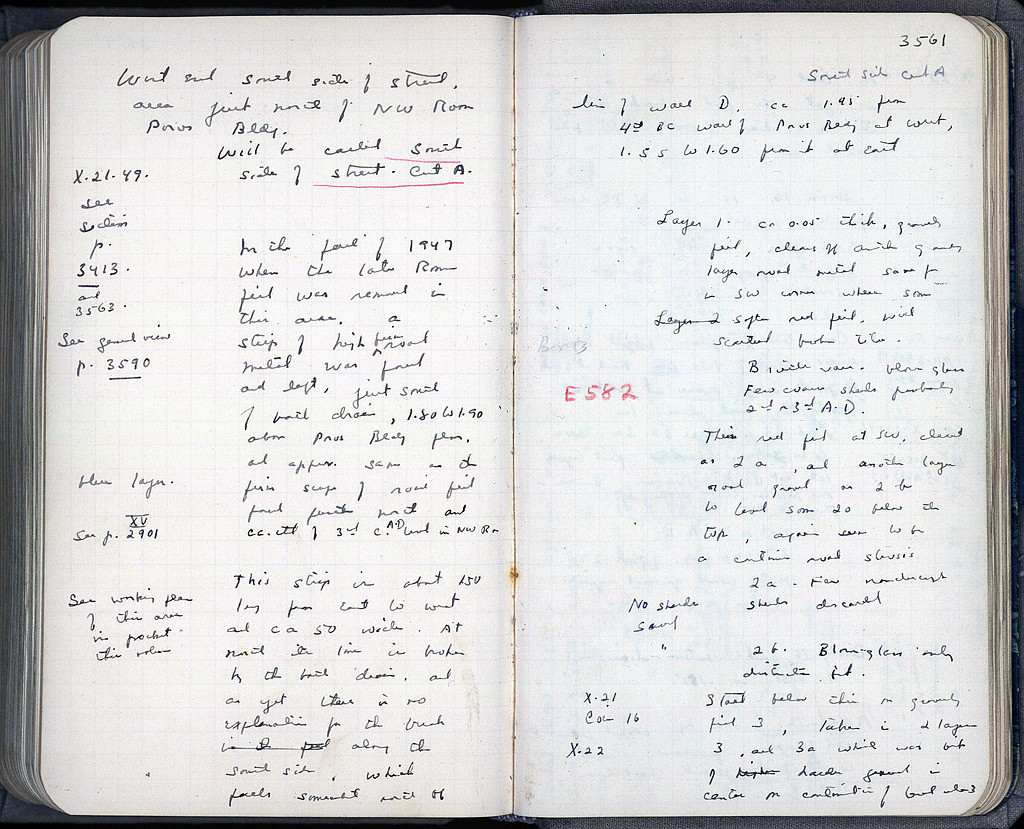 West end south side of street,
area just north of NW Room
Poros Bldg.
Will be called South
X.21.49. side of street. Cut A.
see
section
p.
3413.
and
3563.
In the fall of 1947
when the late Room
fill was removed in
this area, a
See general view
p. 3590
strip of high firm road
metal was found
and left, just south
of tile drain, 1.80 to 1.90
above Poros Bldg floor,
and approx. same as the
blue layer.
firm scrape of road fill
found further north and
XV
see p. 2901
of 3rd c. A.D. level in NW Rm
This strip is about 150
long from East to West
and ca 50 wide. At
See working plan
of this area
in pocket
this volume
north its line is broken
by the tile drain, and
as yet there is no
explanation for the break
along the
south side, which
falls somewhat north of
3561
South side Cut A
line of wall D, ca 1.45 from
4th BC wall of Poros Bldg at West,
1.55 to 1.60 from it at East
Layer 1. ca 0.05 thick, gravely
fill, clean off another gravely
layer road metal same for
in SW corner where some
Layer 2 softer red fill, with
scattered broken tile.
B 1 with blown glass
E 582
Few coarse sherds probably
2nd - 3rd A.D.
This red fill at SW, cleared
as 2 a, and another layer
road gravel as 2 b
to level some 20 below the
top, again seem to be
a certain road stereosis
2a. Few nondescript
sherds discarded
No sherds
saved
" 2b. Blown glass only
distinctive bit.
X.21
Coin 16
Start below this on gravely
fill 3, taken in 2 layers
X-22
3, and 3a which was bit
of harder gravel in
center